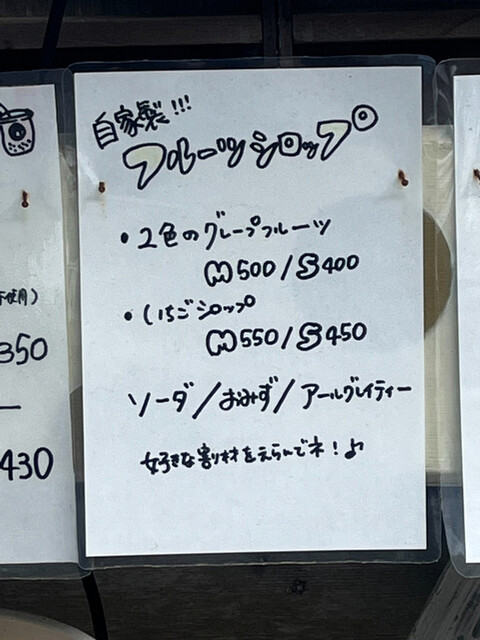 自家製!!!
フルーツシロップ
・2色のグレープフルーツ
M500/S400
・いちごシロップ
M550/S450
ソーダ/おみず/アールグレイティー
好きな割り材をえらんでネ!♪
使用)
350
430